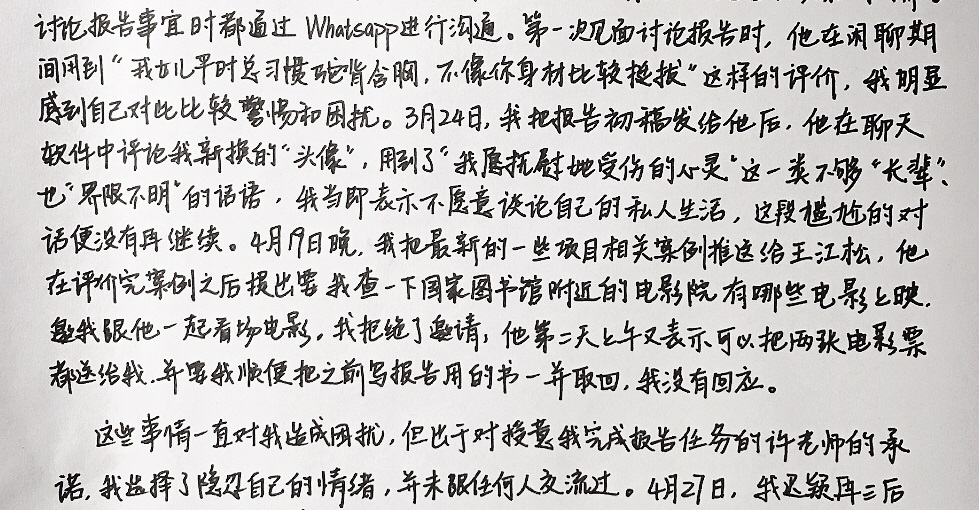 讨论报告事宜时都通过 Whatsapp进行沟通。第一次见面讨论报告时，他在闲聊期
间用到“我女儿平时总习惯驼背含胸，不像你身材比较挺拔”这样的评价，我明显
感到自己对此比较警惕和困扰。3月24日，我把报告初稿发给他后，他在聊天
软件中评论我新换的“头像”，用到了“我愿抚慰她受伤的心灵”这一类不够“长辈”、
也“界限不明”的话语，我当即表示不愿意谈论自己的私人生活，这段尴尬的对
话便没有再继续。4月19日晚，我把最新的一些项目相关案例推送给王江松，他
在评价完案例之后提出要我查一下国家图书馆附近的电影院有哪些电影上映，
邀我跟他一起看场电影。我拒绝了邀请，他第二天上午又表示可以把两张电影票
都送给我，并要我顺便把之前写报告用的书一并取回，我没有回应。
这些事情一直对我造成困扰，但出于对授意我完成报告任务的许老师的承
诺，我选择了隐忍自己的情绪，并未跟任何人交流过。4月27日，我迟疑再三后